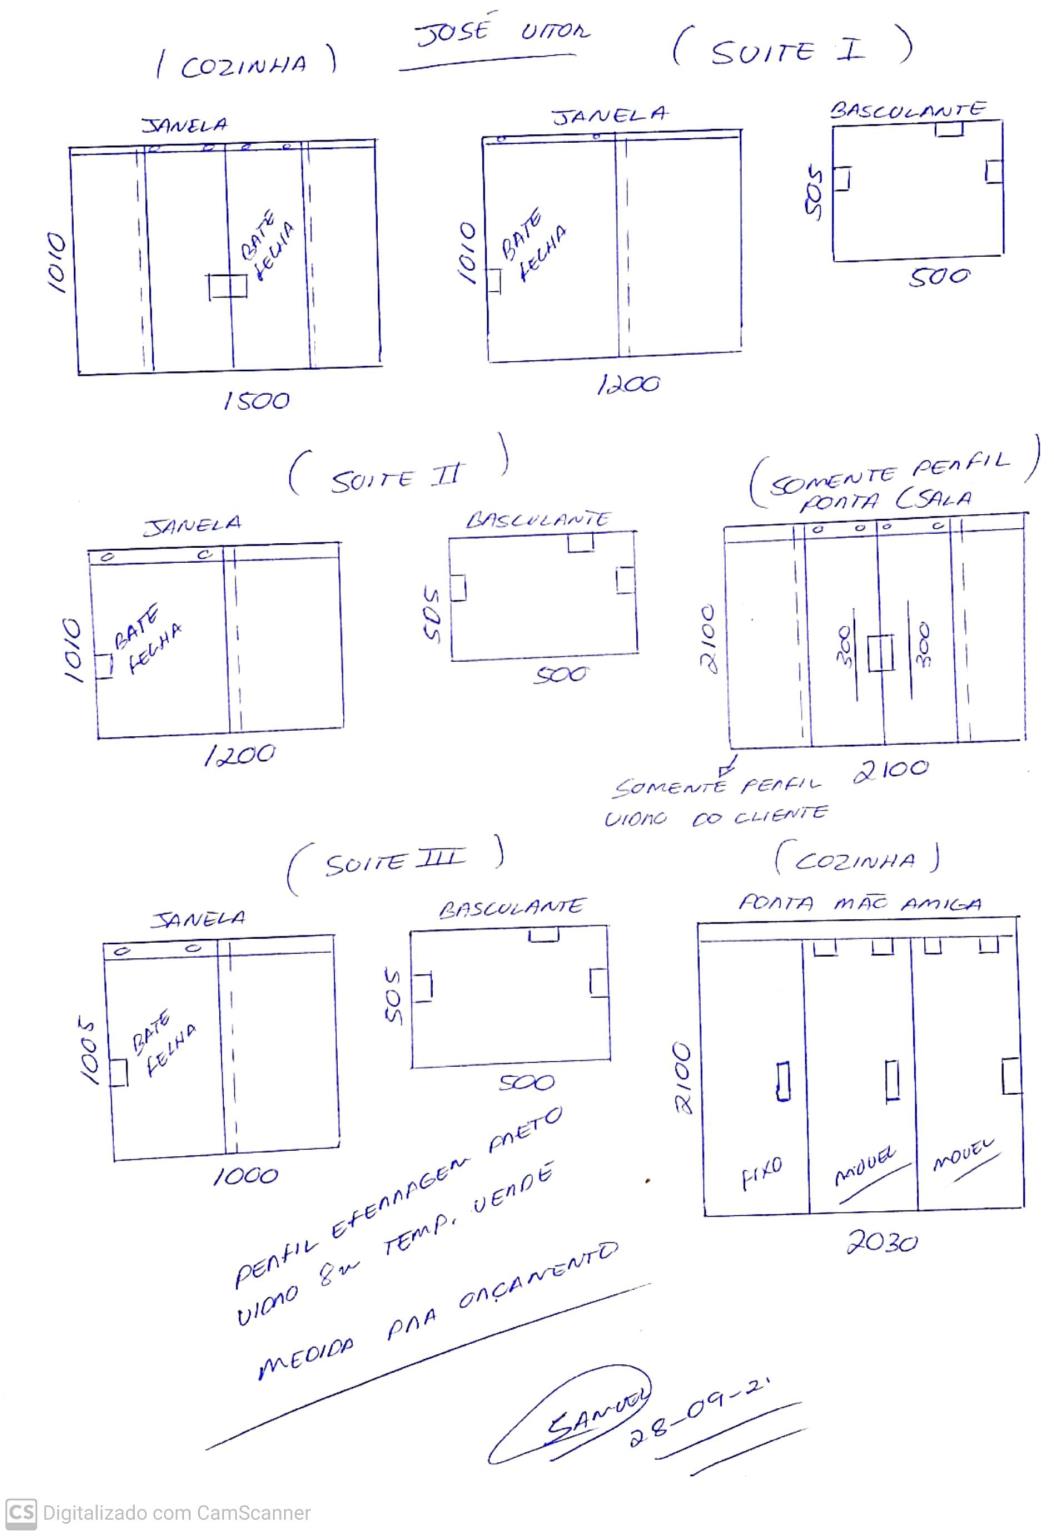 JOSÉ VITOR
(COZINHA)
(SUITE I)
JANELA
1010
BATE
FECHA
1500
JANELA
1010
BATE
FECHA
1200
BASCULANTE
505
500
(SUITE II)
JANELA
1010
BATE
FECHA
1200
BASCULANTE
505
500
(SOMENTE PERFIL)
PORTA (SALA
2100
300
300
2100
SOMENTE PERFIL
VIDRO DO CLIENTE
(SUITE III)
JANELA
1005
BATE
FECHA
1000
BASCULANTE
505
500
(COZINHA)
PORTA MÃO AMIGA
2100
FIXO
MOVEL
MOVEL
2030
PERFIL E FERRAGEM PRETO
VIDRO 8m TEMP. VERDE
MEDIDA PRA ORÇAMENTO
SAMUEL
28-09-2
CS Digitalizado com CamScanner